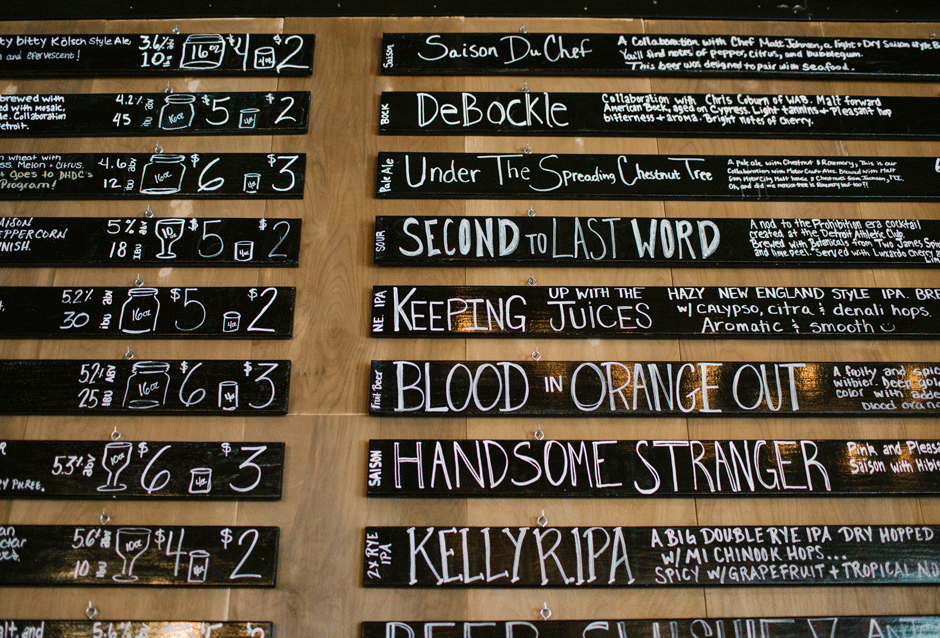 ty bitty Kölsch Style Ale,
and efervescent!
3.6%
10
16oz
$4
4oz
$2
brewed with
ed with mosaic,
Collaboration
etroit.
4.2% abv
45 ibu
16oz
$5
$2
n wheat with
ss. Melon + Citrus.
t Goes to DHDC's
Program!
4.6 abv
12
16oz
$6
4oz
$3
AISON
EPPERCORN
INISH.
5% abv
18 IBU
10oz
$5
4oz
$2
5.2% abv
30 ibu
16oz
$5
4oz
$2
5.2% ABV
25 IBU
16oz
$6
4oz
$3
RY PUREE.
5.3% abv
10oz
$6
4oz
$3
an
ctar
5.6% abv
10
10oz
$4
4oz
$2
alt, and
5.6% abv
Saison
Saison DuChef
A Collaboration with Chef Matt Johnson, a light + Dry Saison style B
You'll find notes of pepper, citrus, and bubblegum.
This beer was designed to pair with seafood.
BOCK
DeBockle
Collaboration with Chris Coburn of WAB. Malt forward
American Bock, aged on Cypress. Light + tannins + Pleasant hop
bitterness + aroma. Bright notes of Cherry.
Pale Ale
Under The Spreading Chestnut Tree
A pale ale with Chestnut & Rosemary, This is our
Collaboration with Motor City Brewed with Malt
from Motor City Malt house & Chestnuts from Jackson, MI.
Oh, and did we mention there is Rosemary leaf too?!
SOUR
SECOND TO LAST WORD
A nod to the Prohibition era cocktail
created at the Detroit Athletic Club.
Brewed with Botanicals from Two James Spi
and lime peel. Served with Luxardo Cherry a
Lim
N.E. IPA
KEEPING UP WITH THE JUICES
HAZY NEW ENGLAND STYLE IPA. BRE
w/ CALYPSO, citra & denali hops.
Aromatic & smooth
Fruit Beer
BLOOD IN ORANGE OUT
A fruity and spic
witbier. Deep gold
color with adde
blood oran
SAISON
HANDSOME STRANGER
Pink and Pleasa
Saison with Hibi
2X RYE IPA
KELLY R.IPA
A BIG DOUBLE RYE IPA DRY HOPPED
W/ MI CHINOOK HOPS...
SPICY W/ GRAPEFRUIT + TROPICAL NO